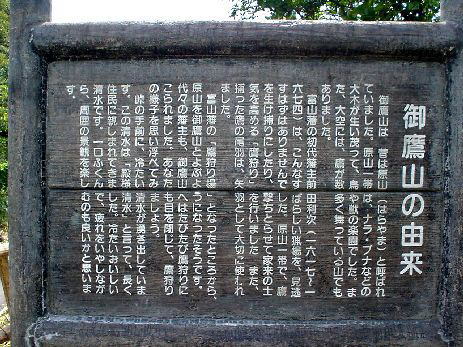 御鷹山の由来
御鷹山は 昔は原山(はらやま)と呼ばれ
ていました。原山一帯は、ナラ・ブナなどの
大木が生い茂って、鳥や獣の楽園でした。ま
た、大空には、鷹が数多く舞っている山でも
ありました。
富山藩の初代藩主前田利次(一六一七～一
六七四)は、こんなすばらしい猟場を、見逃
すはずはありませんでした。原山一帯で、鷹
を生け捕りにしたり、撃ちとらせて家来の士
気を高める「鷹狩り」を行いました。また、
捕った鷹の尾羽は、矢羽として大切に使われ
ました。
富山藩の「鷹狩り場」となったところから、
原山を御鷹山とよぶようになったそうです。
代々の藩主も、御鷹山へはたびたび鷹狩りに
こられました。あなたも目を閉じて、鷹狩り
の様子を思い浮べてみましょう。
峠の手前に、冷たい清水が湧き出していま
す。この清水は、「殿様清水」と言って、長く
住民に親しまれてきました。冷たいおいしい
清水です。一口ふくんで、疲れをいやしなが
ら、周囲の景観を楽しむのも良いかと思いま
す。